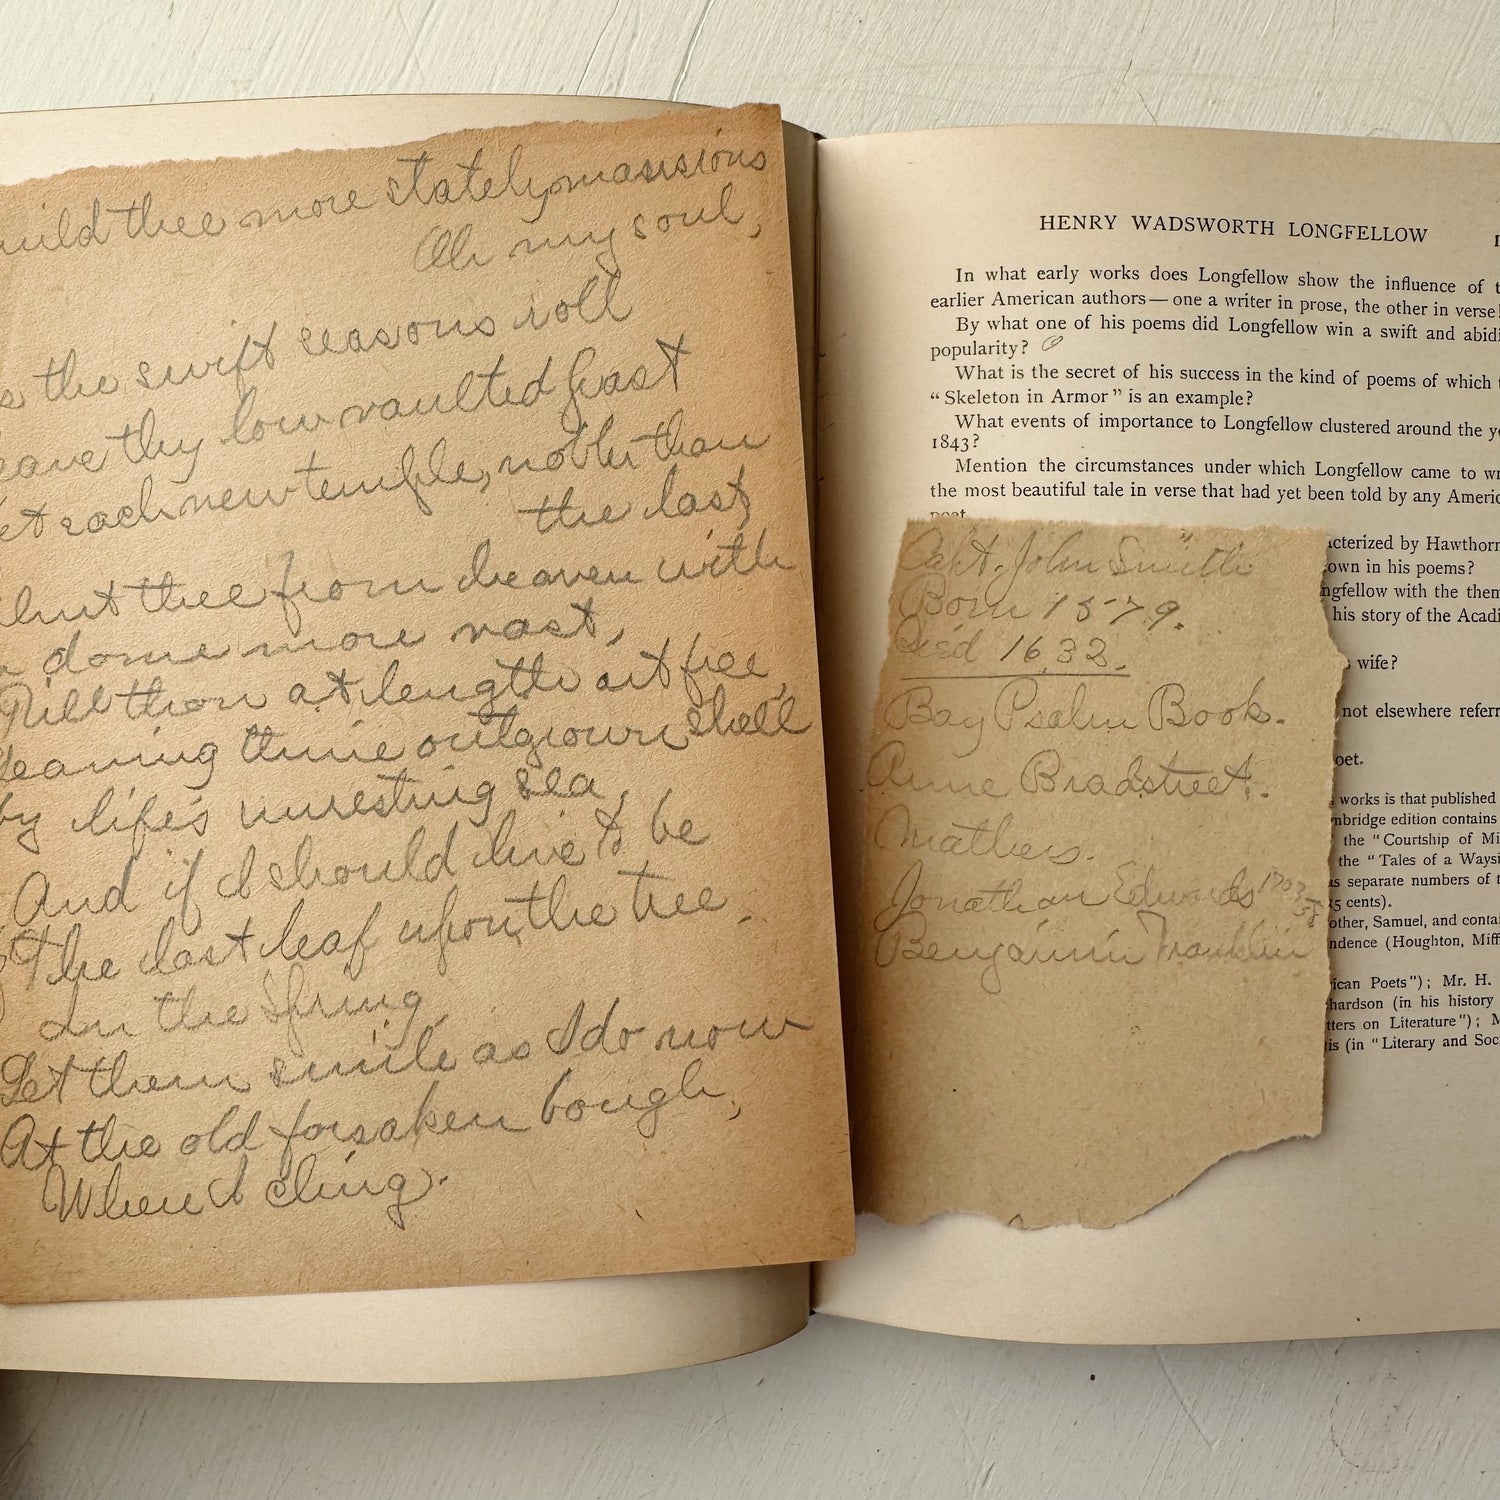 uild thee more stately mansions
Oh my soul,
s the swift seasons roll
eave thy low vaulted past
et each new temple, nobler than
the last
shut thee from heaven with
a dome more vast,
Till thou at length art free,
Leaving thine outgrown shell
by life's unresting sea,
And if I should live to be
The last leaf upon the tree
In the Spring,
Let them smile as I do now
At the old forsaken bough,
When I cling.
HENRY WADSWORTH LONGFELLOW
In what early works does Longfellow show the influence of
earlier American authors — one a writer in prose, the other in verse
By what one of his poems did Longfellow win a swift and abidi
popularity?
What is the secret of his success in the kind of poems of which
"Skeleton in Armor" is an example?
What events of importance to Longfellow clustered around the ye
1843?
Mention the circumstances under which Longfellow came to wr
the most beautiful tale in verse that had yet been told by any Americ
poet
Capt. John Smith
Born 1579.
Died 1632.
Bay Psalm Book.
Anne Bradstreet.
Mathers.
Jonathan Edwards 1703
58
Benjamin Franklin
acterized by Hawthorn
own in his poems?
ngfellow with the them
his story of the Acadi
wife?
not elsewhere referr
oet.
works is that published
mbridge edition contains
the "Courtship of Mi
the "Tales of a Waysi
as separate numbers of t
5 cents).
other, Samuel, and conta
ndence (Houghton, Miff
ican Poets"); Mr. H.
hardson (in his history
tters on Literature"); M
is (in "Literary and Soc